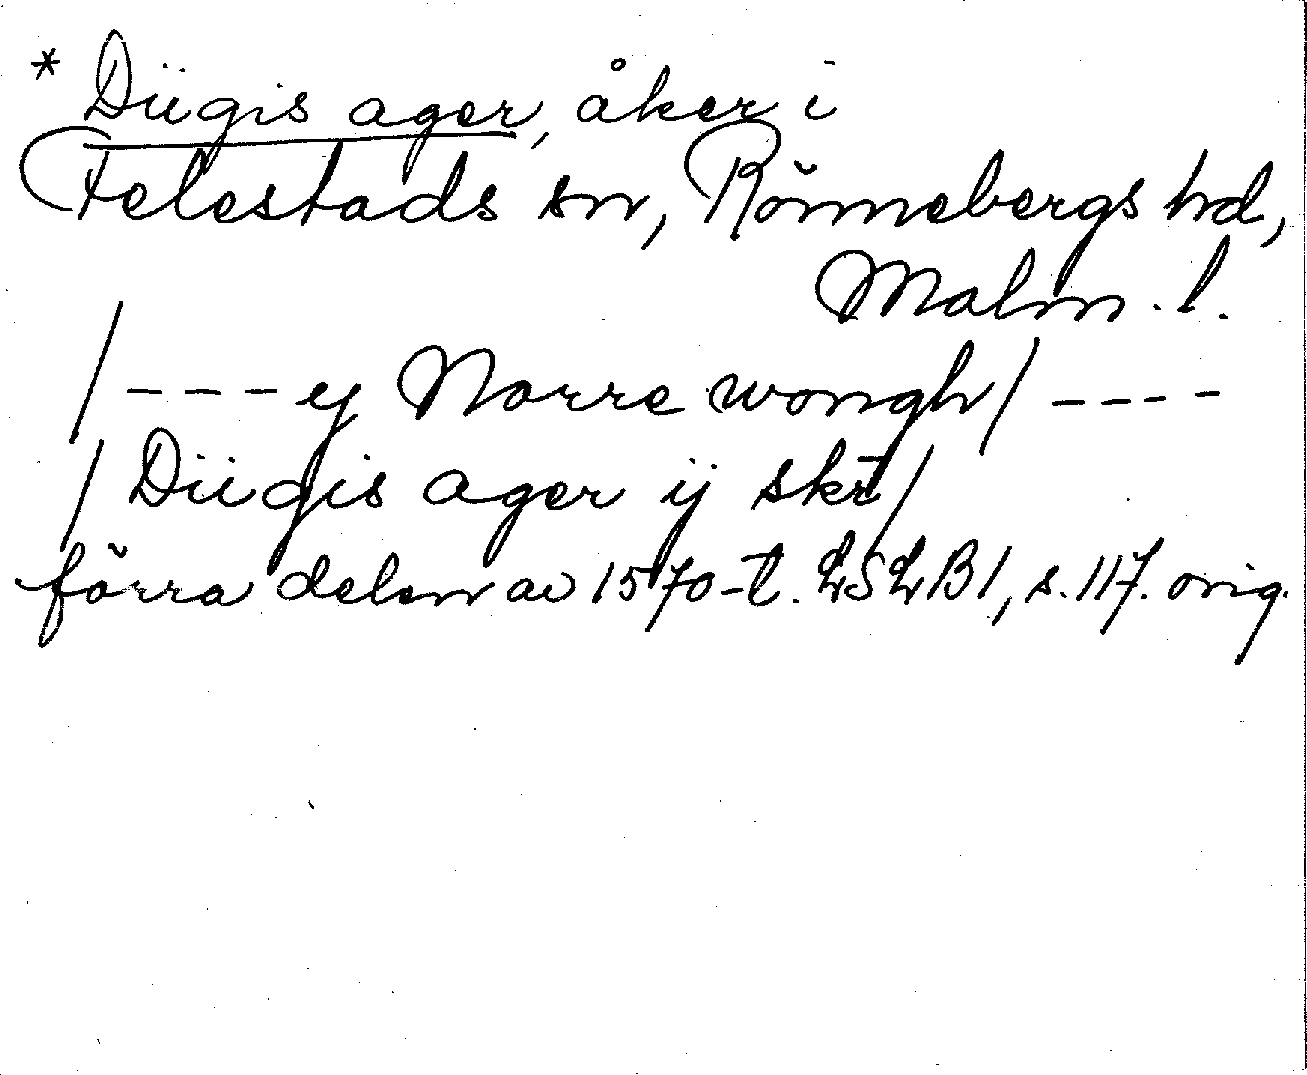 * Diigis ager, åker i
Felestads sn, Rönnebergs hd,
Malm. l.
/ - - - ij Norre wongh / - - - -
/ Diigis ager ij skr /
förra delen av 1570-t. LSLB1, s. 117. orig.